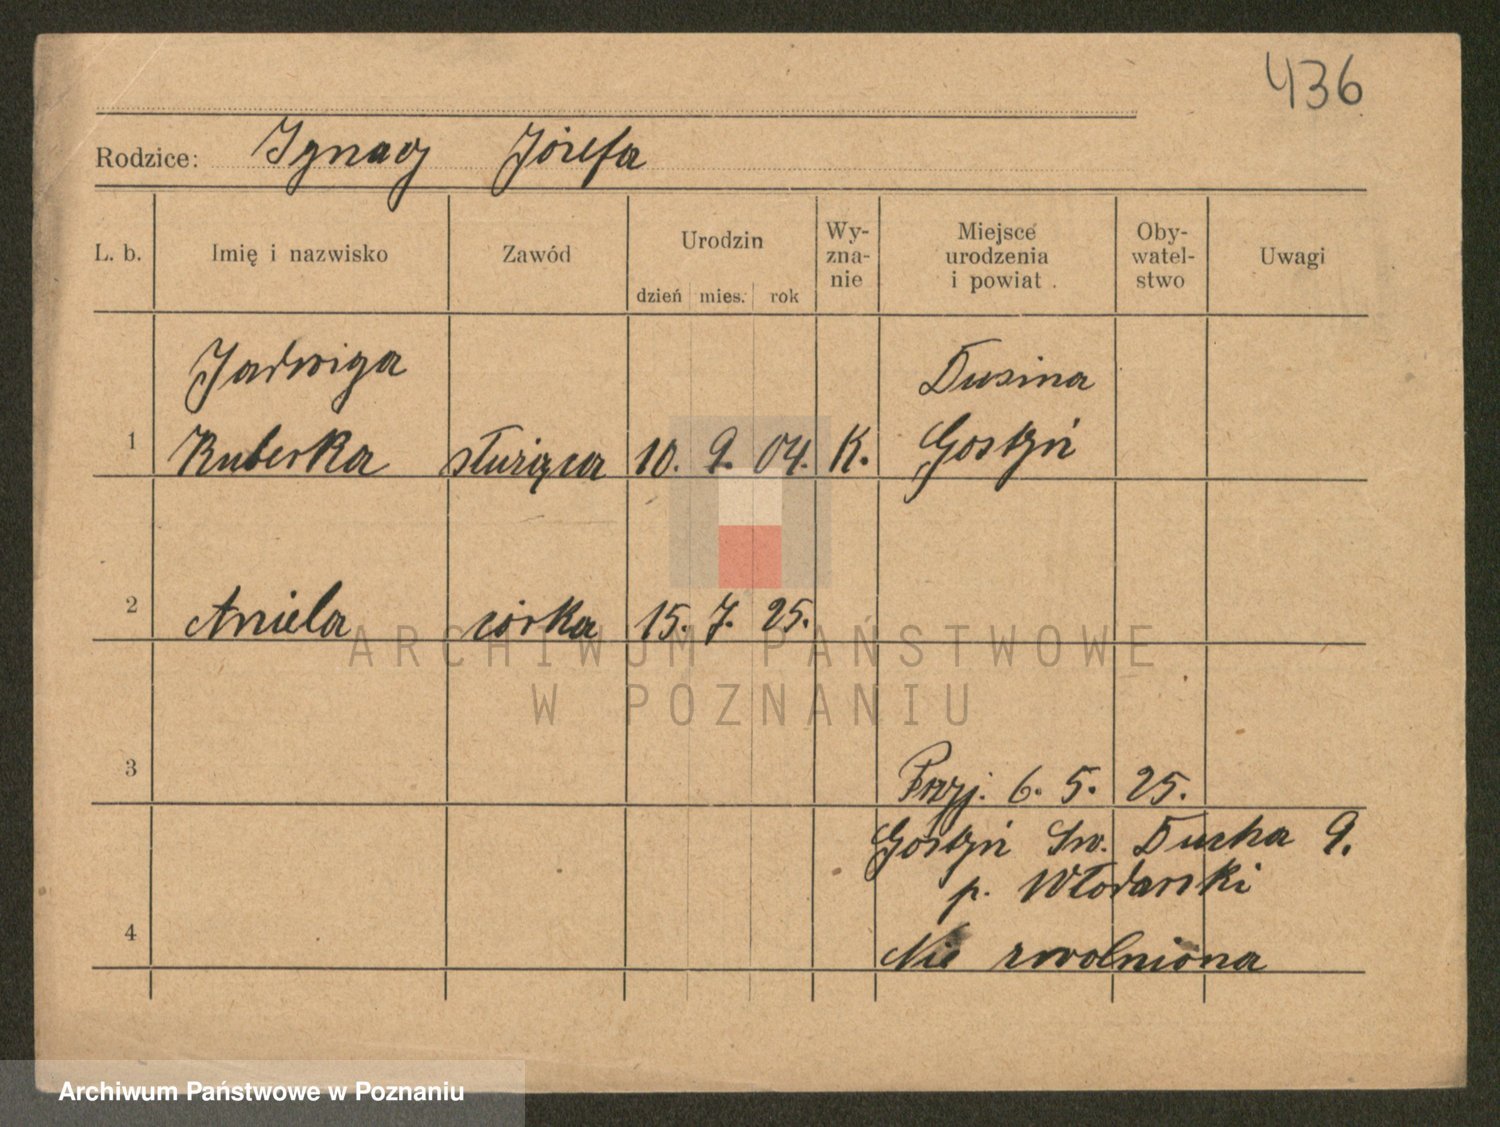 436
Rodzice: Ignacy Józefa
L. b. Imię i nazwisko Zawód Urodzin dzień mies. rok Wy-zna-nie Miejsce urodzenia i powiat . Oby-watel-stwo Uwagi
Jadwiga Dusina
1 Kuberka służąca 10. 9. 04. K. Gostyń
2 Aniela córka 15. 7. 25.
ARCHIWUM PAŃSTWOWE
W POZNANIU
3 Przyj. 6. 5. 25.
Gostyń Św. Ducha 9.
p. Włodarski
4 Nie zwolniona
Archiwum Państwowe w Poznaniu